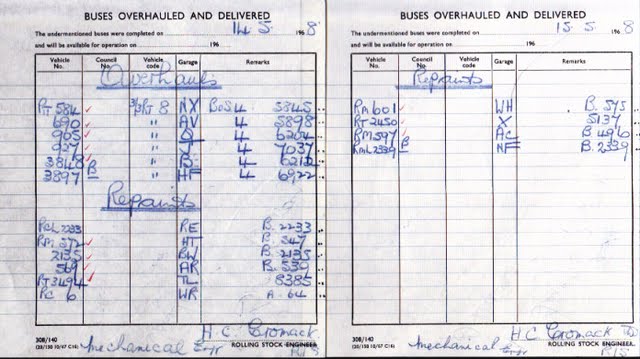 BUSES OVERHAULED AND DELIVERED
The undermentioned buses were completed on 14.5. 1968
and will be available for operation on 196
Vehicle No. Council No. Vehicle code Garage Remarks
Overhauls
RT 584 3/3RT 8 NX BoS 4 5845
690 " AV 4 5898
965 " 4 6204
927 " 4 7037
3848 B " B 4 6212
3897 B " HF 4 6922
Repaints
RCL 2233 RE B. 2233
RM 372 HT B. 347
2135 BW B. 2135
569 AR B. 539
RT 3494 TL 8385
RC 6 WR A. 64
H.C. Cromack
308/140
Mechanical Engr ROLLING STOCK ENGINEER
BUSES OVERHAULED AND DELIVERED
The undermentioned buses were completed on 15.5. 1968
and will be available for operation on 196
Vehicle No. Council No. Vehicle code Garage Remarks
Repaints
RM 601 WH B. 575
RT 2450 X 5137
RM 597 AC B 496
RML 2339 B NF B. 2339
H.C. Cromack
308/140
Mechanical Engr ROLLING STOCK ENGINEER